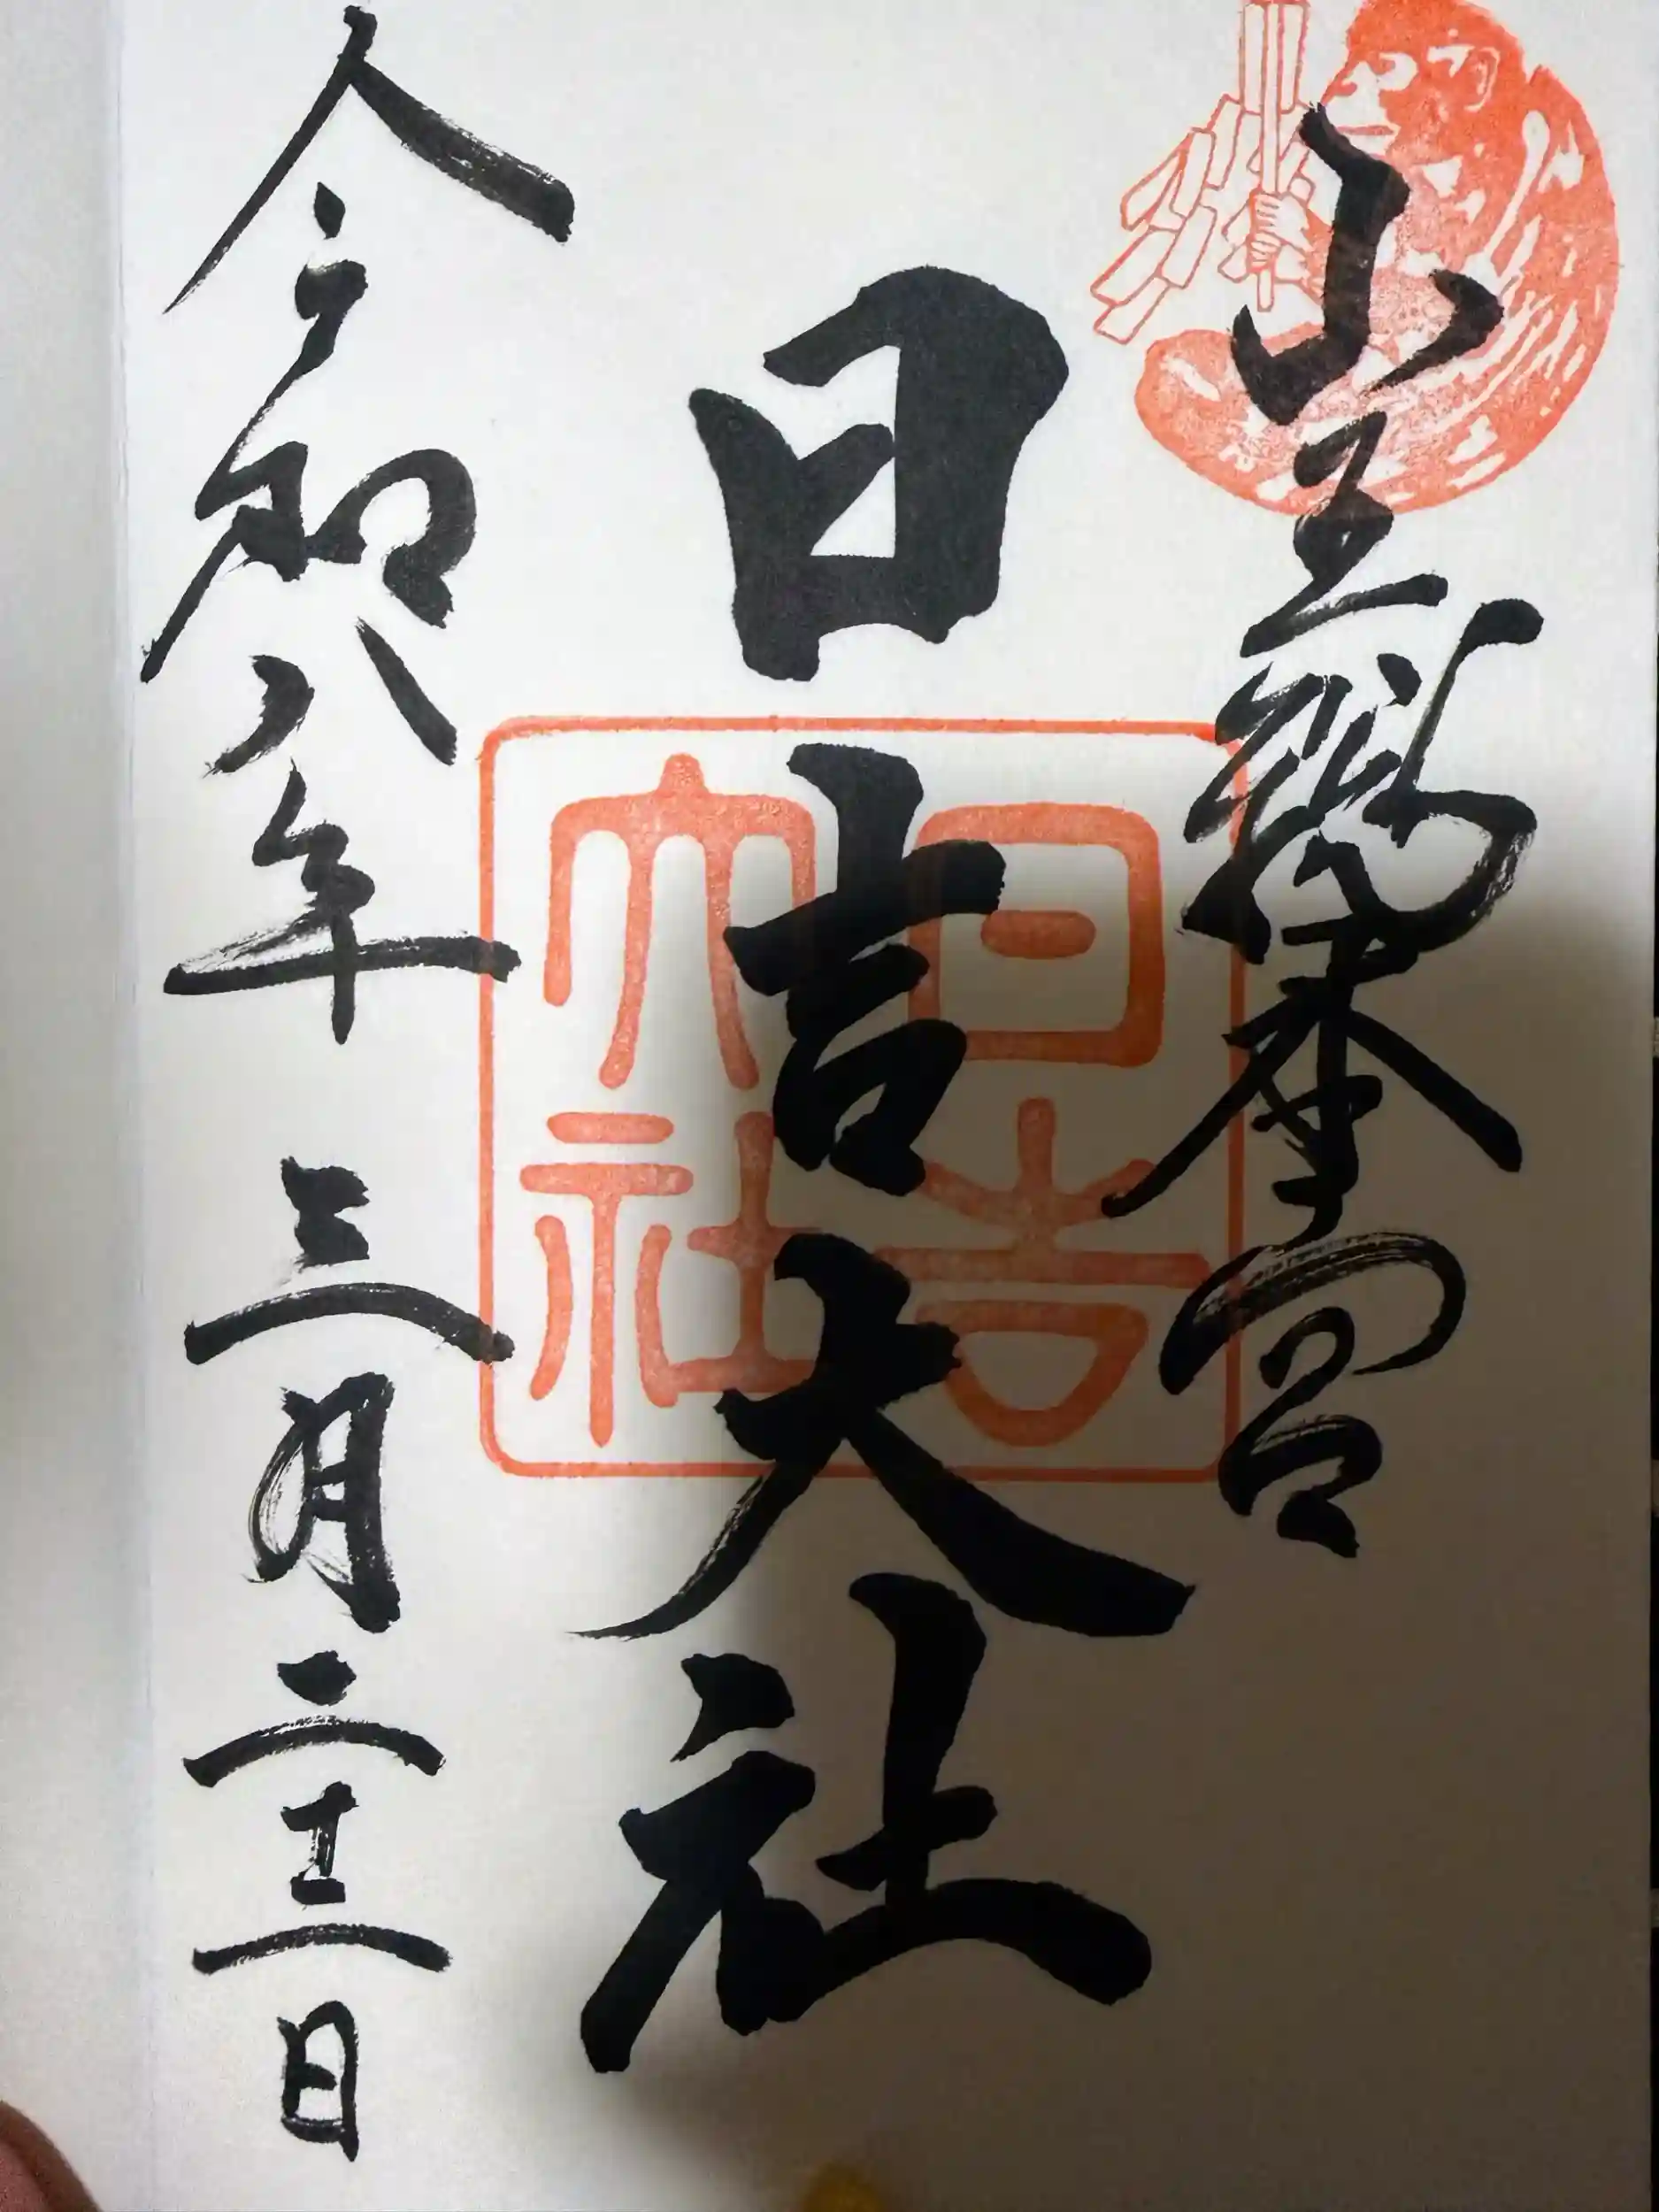 山王総本宮
日吉大社
日吉大社
令和八年三月二十三日